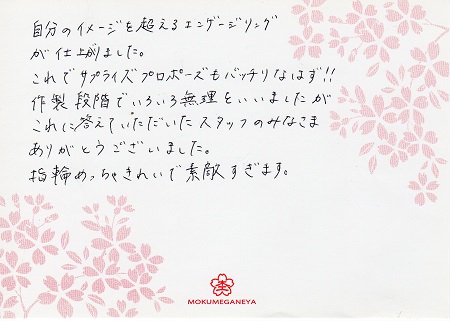 自分のイメージを超えるエンゲージリング
が仕上がりました。
これでサプライズプロポーズもバッチリなはず!!
作製段階でいろいろ無理をいいましたが
これに答えていただいたスタッフのみなさま
ありがとうございました。
指輪めっちゃきれいで素敵すぎます。
MOKUMEGANEYA